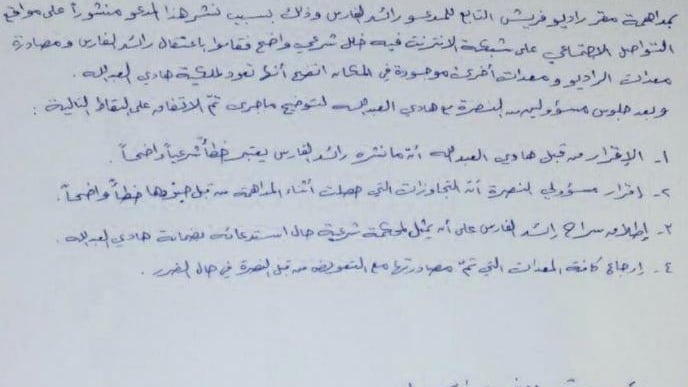 بمداهمة مقر راديو فريش التابع للمدعو رائد الفارس وذلك بسبب نشر هذا المدعو منشوراً على مواقع
التواصل الاجتماعي على شبكة الانترنت فيه خلل شرعي واضح فقاموا باعتقال رائد الفارس ومصادرة
معدات الراديو ومعدات أخرى موجودة في المكان اتضح أنها تعود لملكية هادي العبدالله .
وبعد جلوس مسؤولين من النصرة مع هادي العبدالله لتوضيح ماجرى تم الاتفاق على النقاط التالية :
١- الإقرار من قبل هادي العبدالله أنّ ما نشره رائد الفارس يعتبر خطأً شرعياً واضحاً .
٢- اقرار مسؤولي النصرة أنّ التجاوزات التي حصلت أثناء المداهمة من قبل جنودها خطأً واضحاً .
٣- إطلاق سراح رائد الفارس على أن يمثل لمحكمة شرعية حال استدعائه بضمانة هادي العبدالله .
٤- إرجاع كافة المعدات التي تمّ مصادرتها مع التعويض من قبل النصرة في حال الضرر .